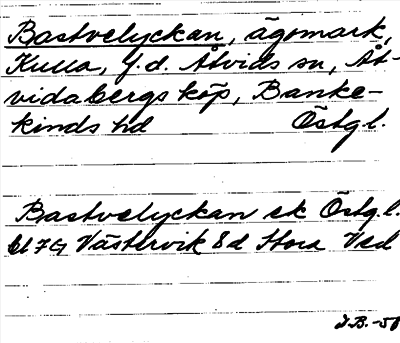 Bastvelyckan, ägomark,
Kulla, Y.d. Åtvids sn, Åt-
vidabergs köp, Banke-
kinds hd Östgl.
Bastvelyckan ek Östg.l.
bl 7G Västervik 8d Stora Ved
J.B.-50